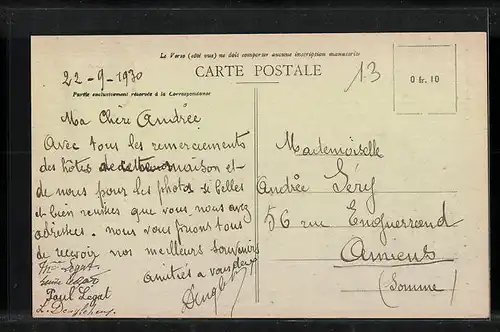 Le Verso (côté vue) ne doit comporter aucune inscription manuscrite
CARTE POSTALE
Partie exclusivement réservée à la Correspondance
0 fr. 10
13
22-9-1930
Ma Chère Andrée
Avec tous les remerciements
des hôtes de cette maison et
de nous pour les photos si belles
et bien rendues que vous nous avez
adressées. nous vous prions tous
de recevoir nos meilleurs souvenirs
amitiés a vous deux
Paul Legat
Mademoiselle
Andrée Léry
56 rue Enguerrand
Amiens
(Somme)